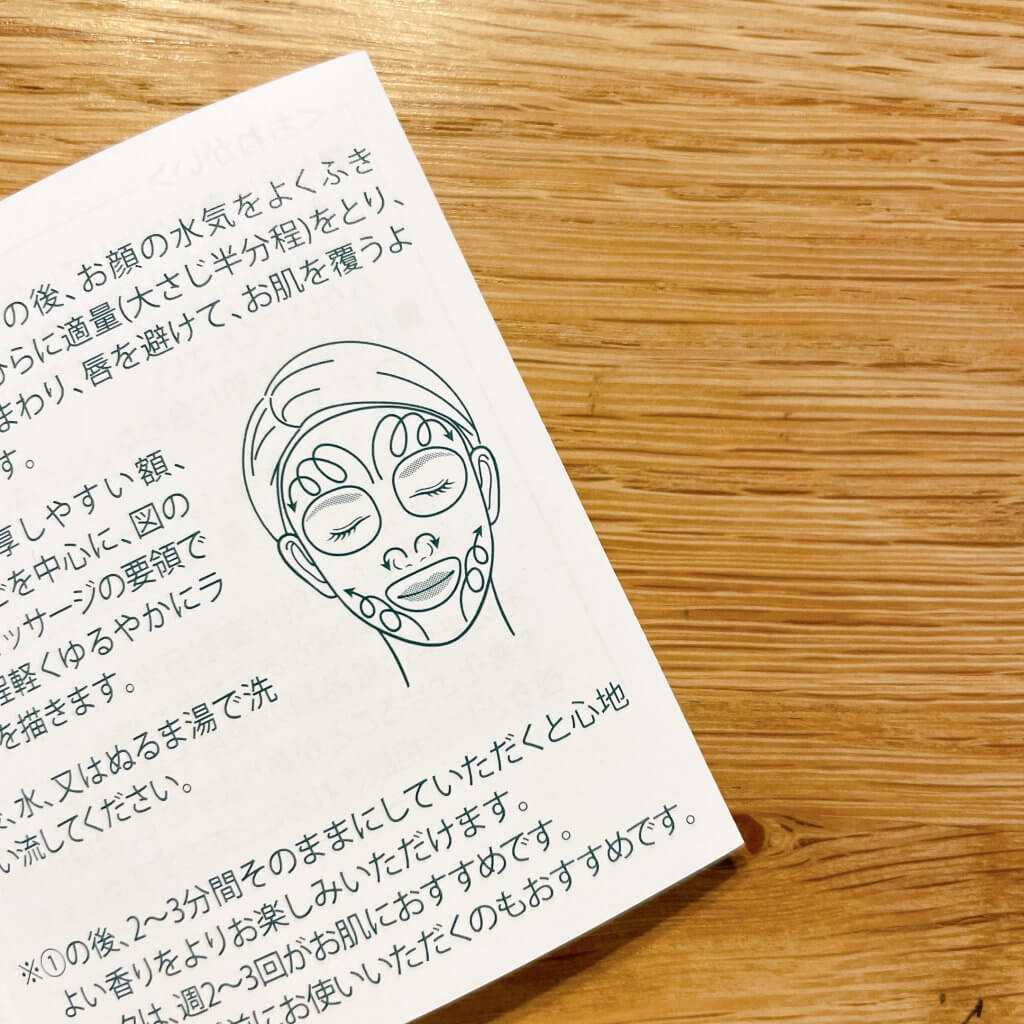 の後、お顔の水気をよくふき
らに適量(大さじ半分程)をとり、
まわり、唇を避けて、お肌を覆うよ
す。
厚しやすい額、
を中心に、図の
ッサージの要領で
程軽くゆるやかにラ
を描きます。
、水、又はぬるま湯で洗
い流してください。
※①の後、2〜3分間そのままにしていただくと心地
よい香りをよりお楽しみいただけます。
は、週2〜3回がお肌におすすめです。
前にお使いいただくのもおすすめです。